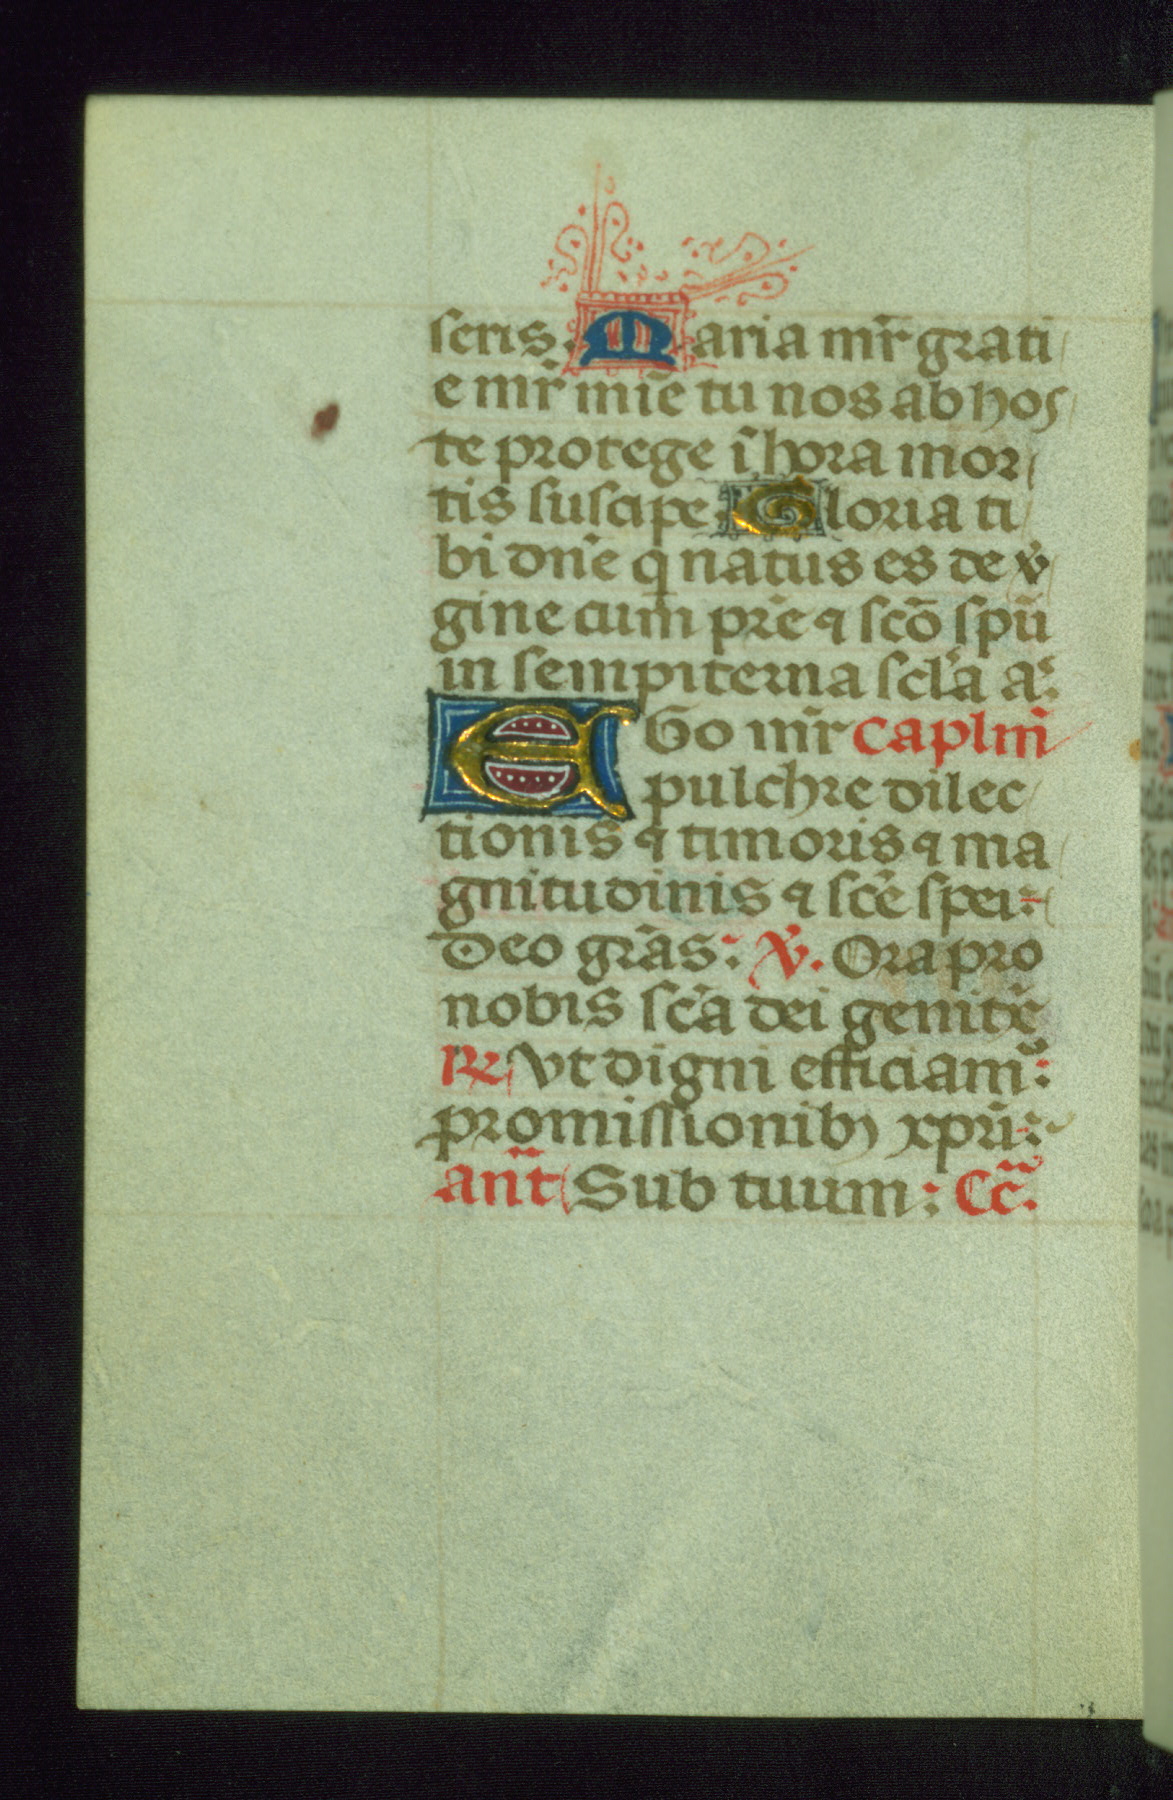 seris. Maria mr̃ grati
e mr̃ mīe tu nos ab hos
te protege ī hora mor
tis suscipe. Gloria ti
bi dn̄e q̇ natus es de v̇
gine cum pr̄e ⁊ scō spū
in sempiterna scl̄a a.
EGo mr̃ caplm̄
pulchre dilec
tionis ⁊ timoris ⁊ ma
gnitudinis ⁊ sc̄e spei:
Deo gr̄as: ℣. Ora pro
nobis sc̄a dei genitͥx
℞ Vt digni efficiamꝰ:
promissionibꝫ xpr̄i:
an̄t Sub tuum: Cc̄.